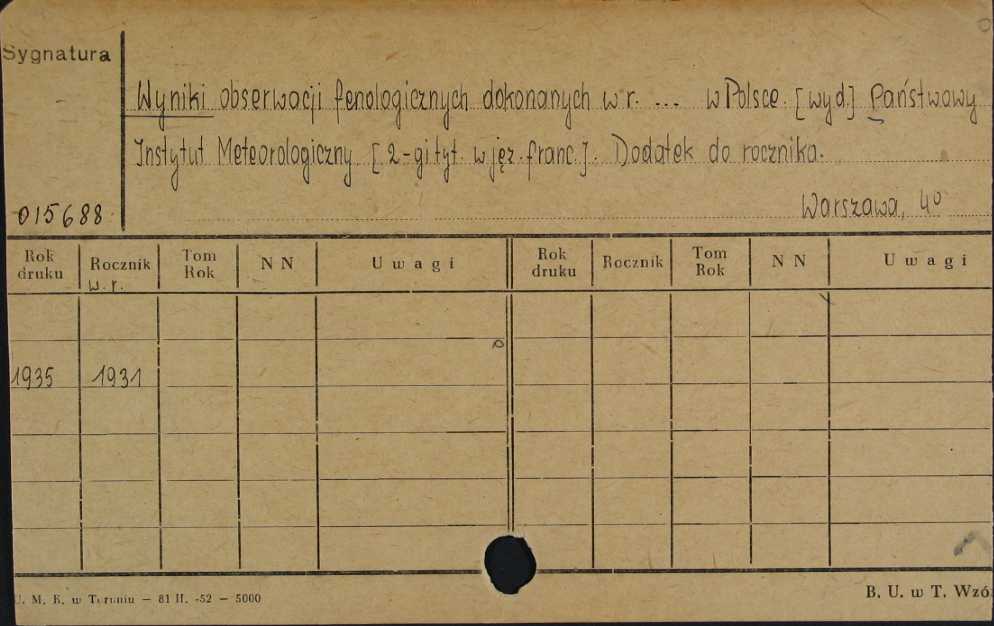 Sygnatura
Wyniki obserwacji fenologicznych dokonanych w r. ... w Polsce. [wyd.] Państwowy
Instytut Meteorologiczny [2-gi tyt. w jęz. franc.]. Dodatek do rocznika.
015688 Warszawa, 4°
Rok druku Rocznik Tom Rok N N Uwagi Rok druku Rocznik Tom Rok N N Uwagi
w. r.
1935 1931
U. M. K. w Toruniu — 81 II. -52 — 5000 B. U. w T. Wzó